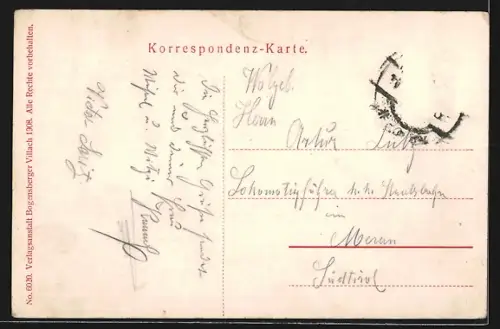 Korrespondenz-Karte.
No. 6020. Verlagsanstalt Bogensberger Villach 1908. Alle Rechte vorbehalten.
Die herzlichsten Grüße sendet
dir und deiner Frau
u.
Wolgeb.
Herrn
Artur Lutz
Lokomotivführer k.k. Staatsbahn
in
Meran
Südtirol